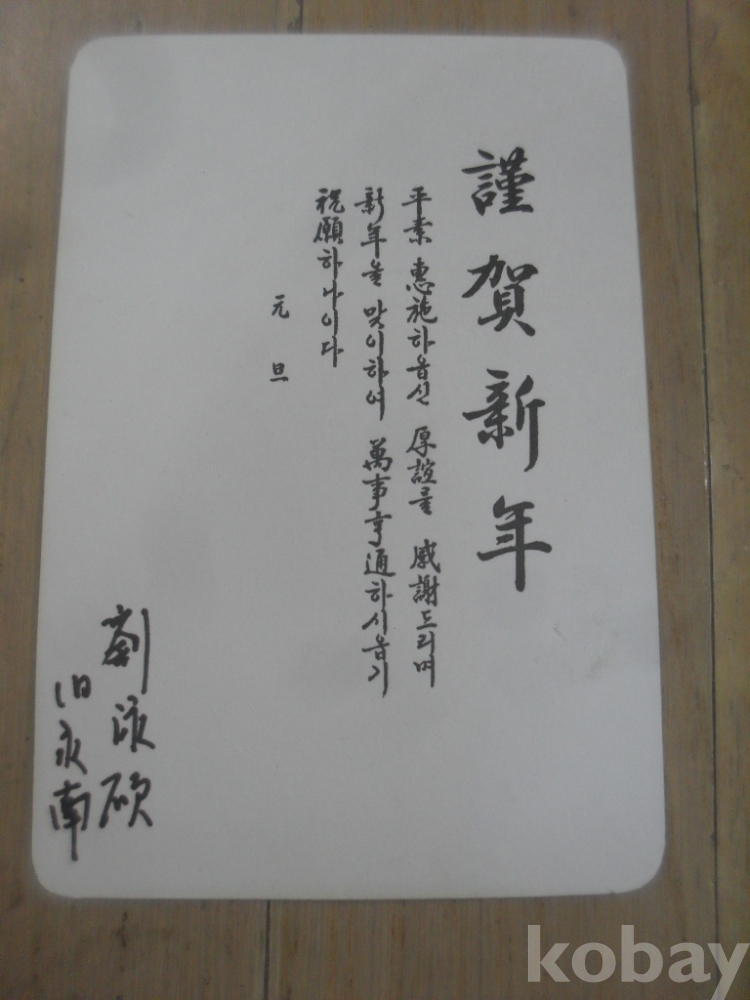 謹賀新年
平素 惠施하옵신 厚誼를 感謝드리며
新年을 맞이하여 萬事亨通하시옵기
祝願하나이다
元旦
劉泳碩
旧永南
kobay